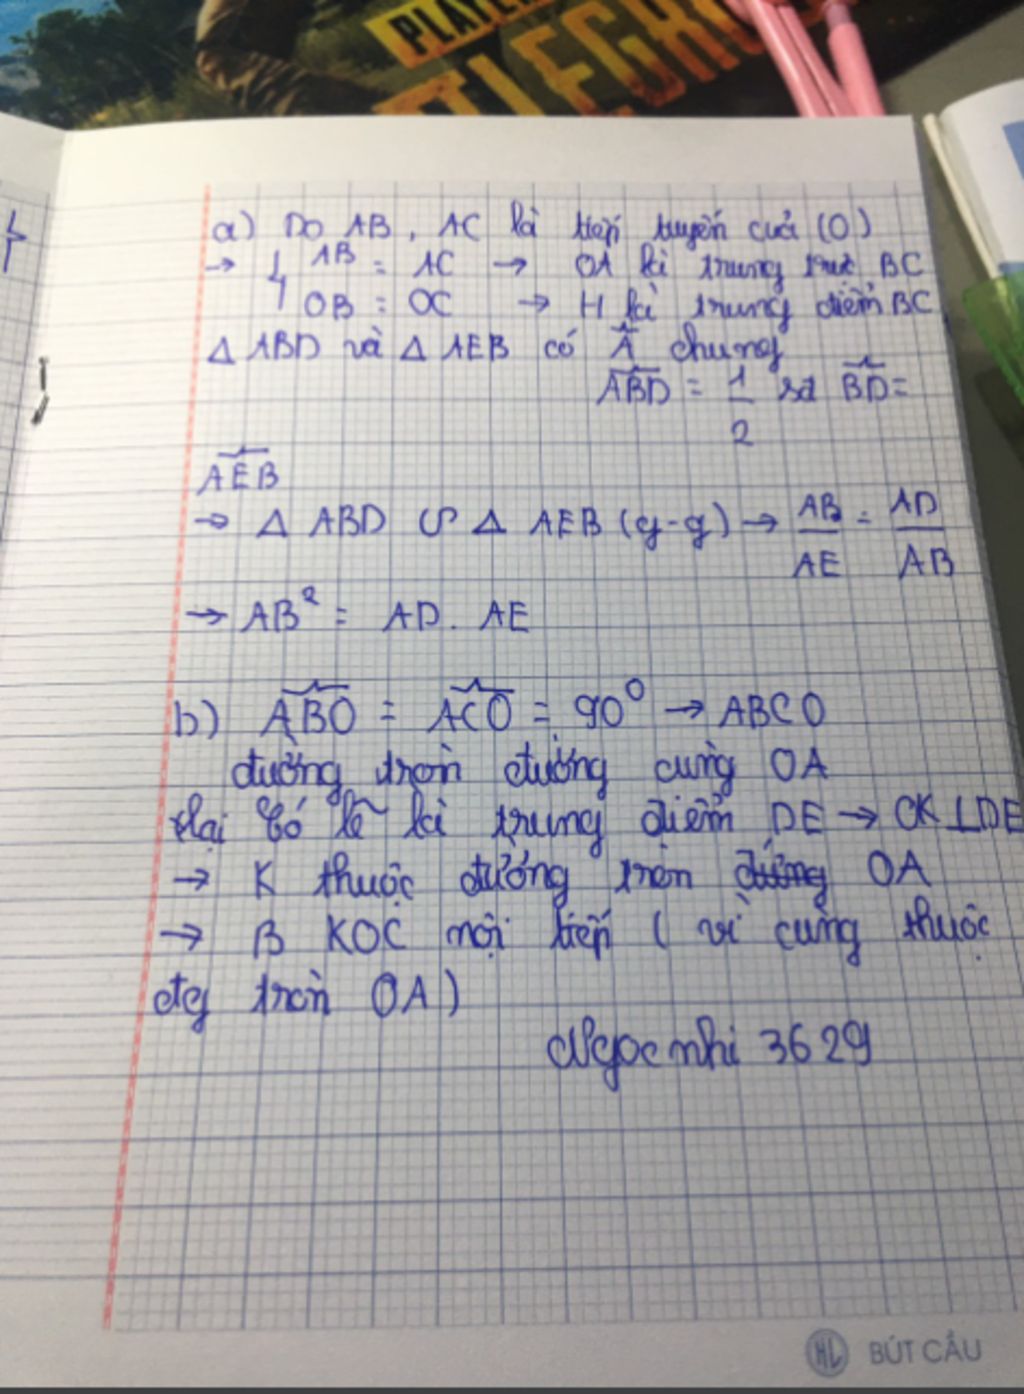 PLAYE
TLEGRO
a) Do AB, AC là tiếp tuyến cuả (O)
→ { AB = AC → OA là trung trực BC
OB = OC → H là trung điểm BC
Δ ABD và Δ AEB có Â chung
ABD = 1/2 sđ BD =
AEB
→ Δ ABD ∽ Δ AEB (g-g) → AB/AE = AD/AB
→ AB² = AD. AE
b) ABO = ACO = 90⁰ → ABCO
đường tròn đường cung OA
lại có là trung điểm DE → OK ⊥ DE
→ K thuộc đường tròn đường OA
→ B KOC nội tiếp ( vì cùng thuộc
đg tròn OA)
Ngoc nhi 3629
HL BÚT CẦU